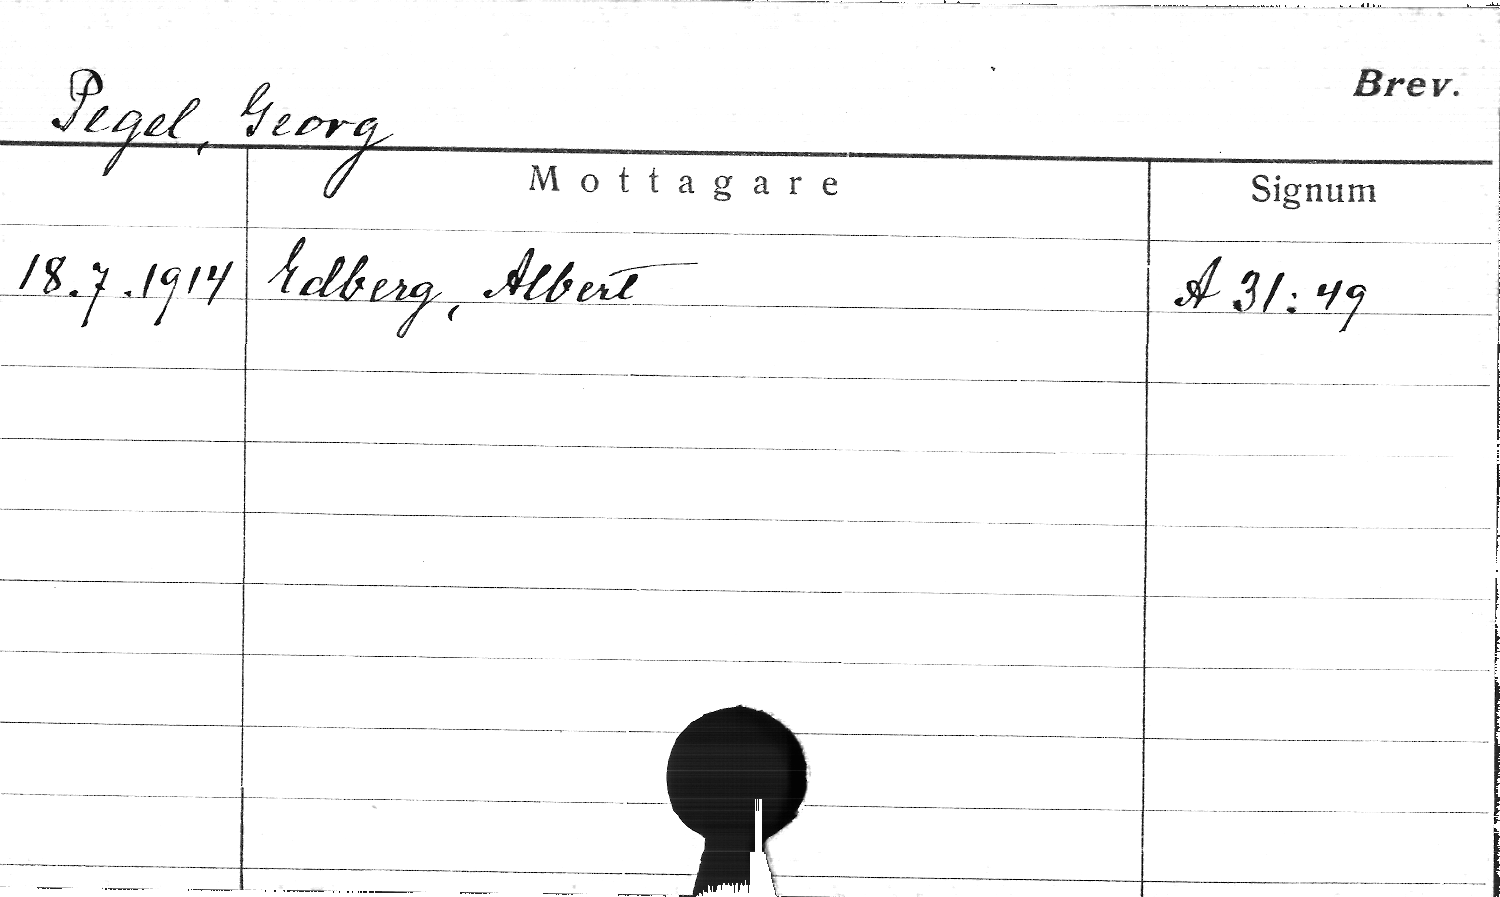 Brev.
Pegel, Georg
Mottagare Signum
18.7.1914 Edberg, Albert A 31:49